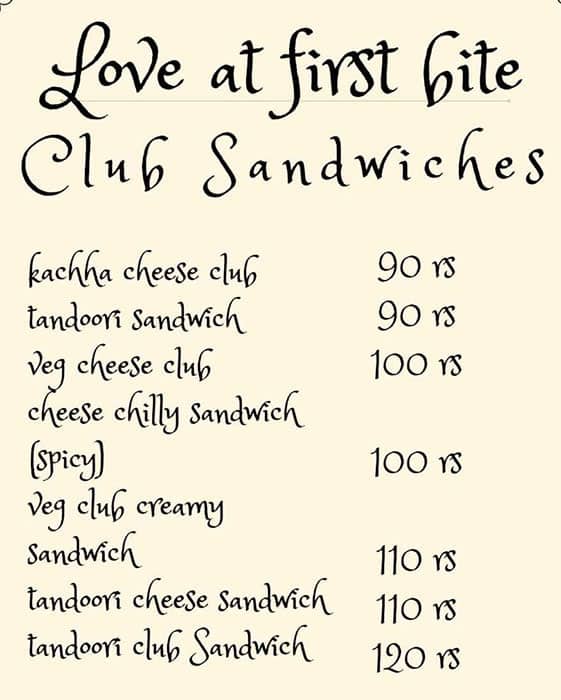 Love at first bite
Club Sandwiches
kachha cheese club 90 rs
tandoori sandwich 90 rs
veg cheese club 100 rs
cheese chilly sandwich
(spicy) 100 rs
veg club creamy
sandwich 110 rs
tandoori cheese sandwich 110 rs
tandoori club Sandwich 120 rs